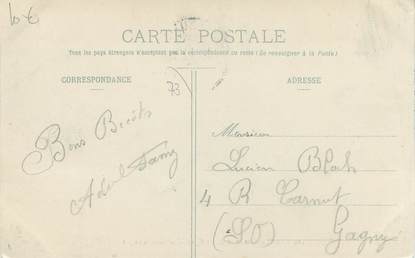 10 €
CARTE POSTALE
Tous les pays étrangers n'acceptent pas la correspondance au recto (Se renseigner à la Poste)
CORRESPONDANCE
ADRESSE
73
Bons
Monsieur
Lucien Bloch
4 R Carnot
(S.O) Gagny